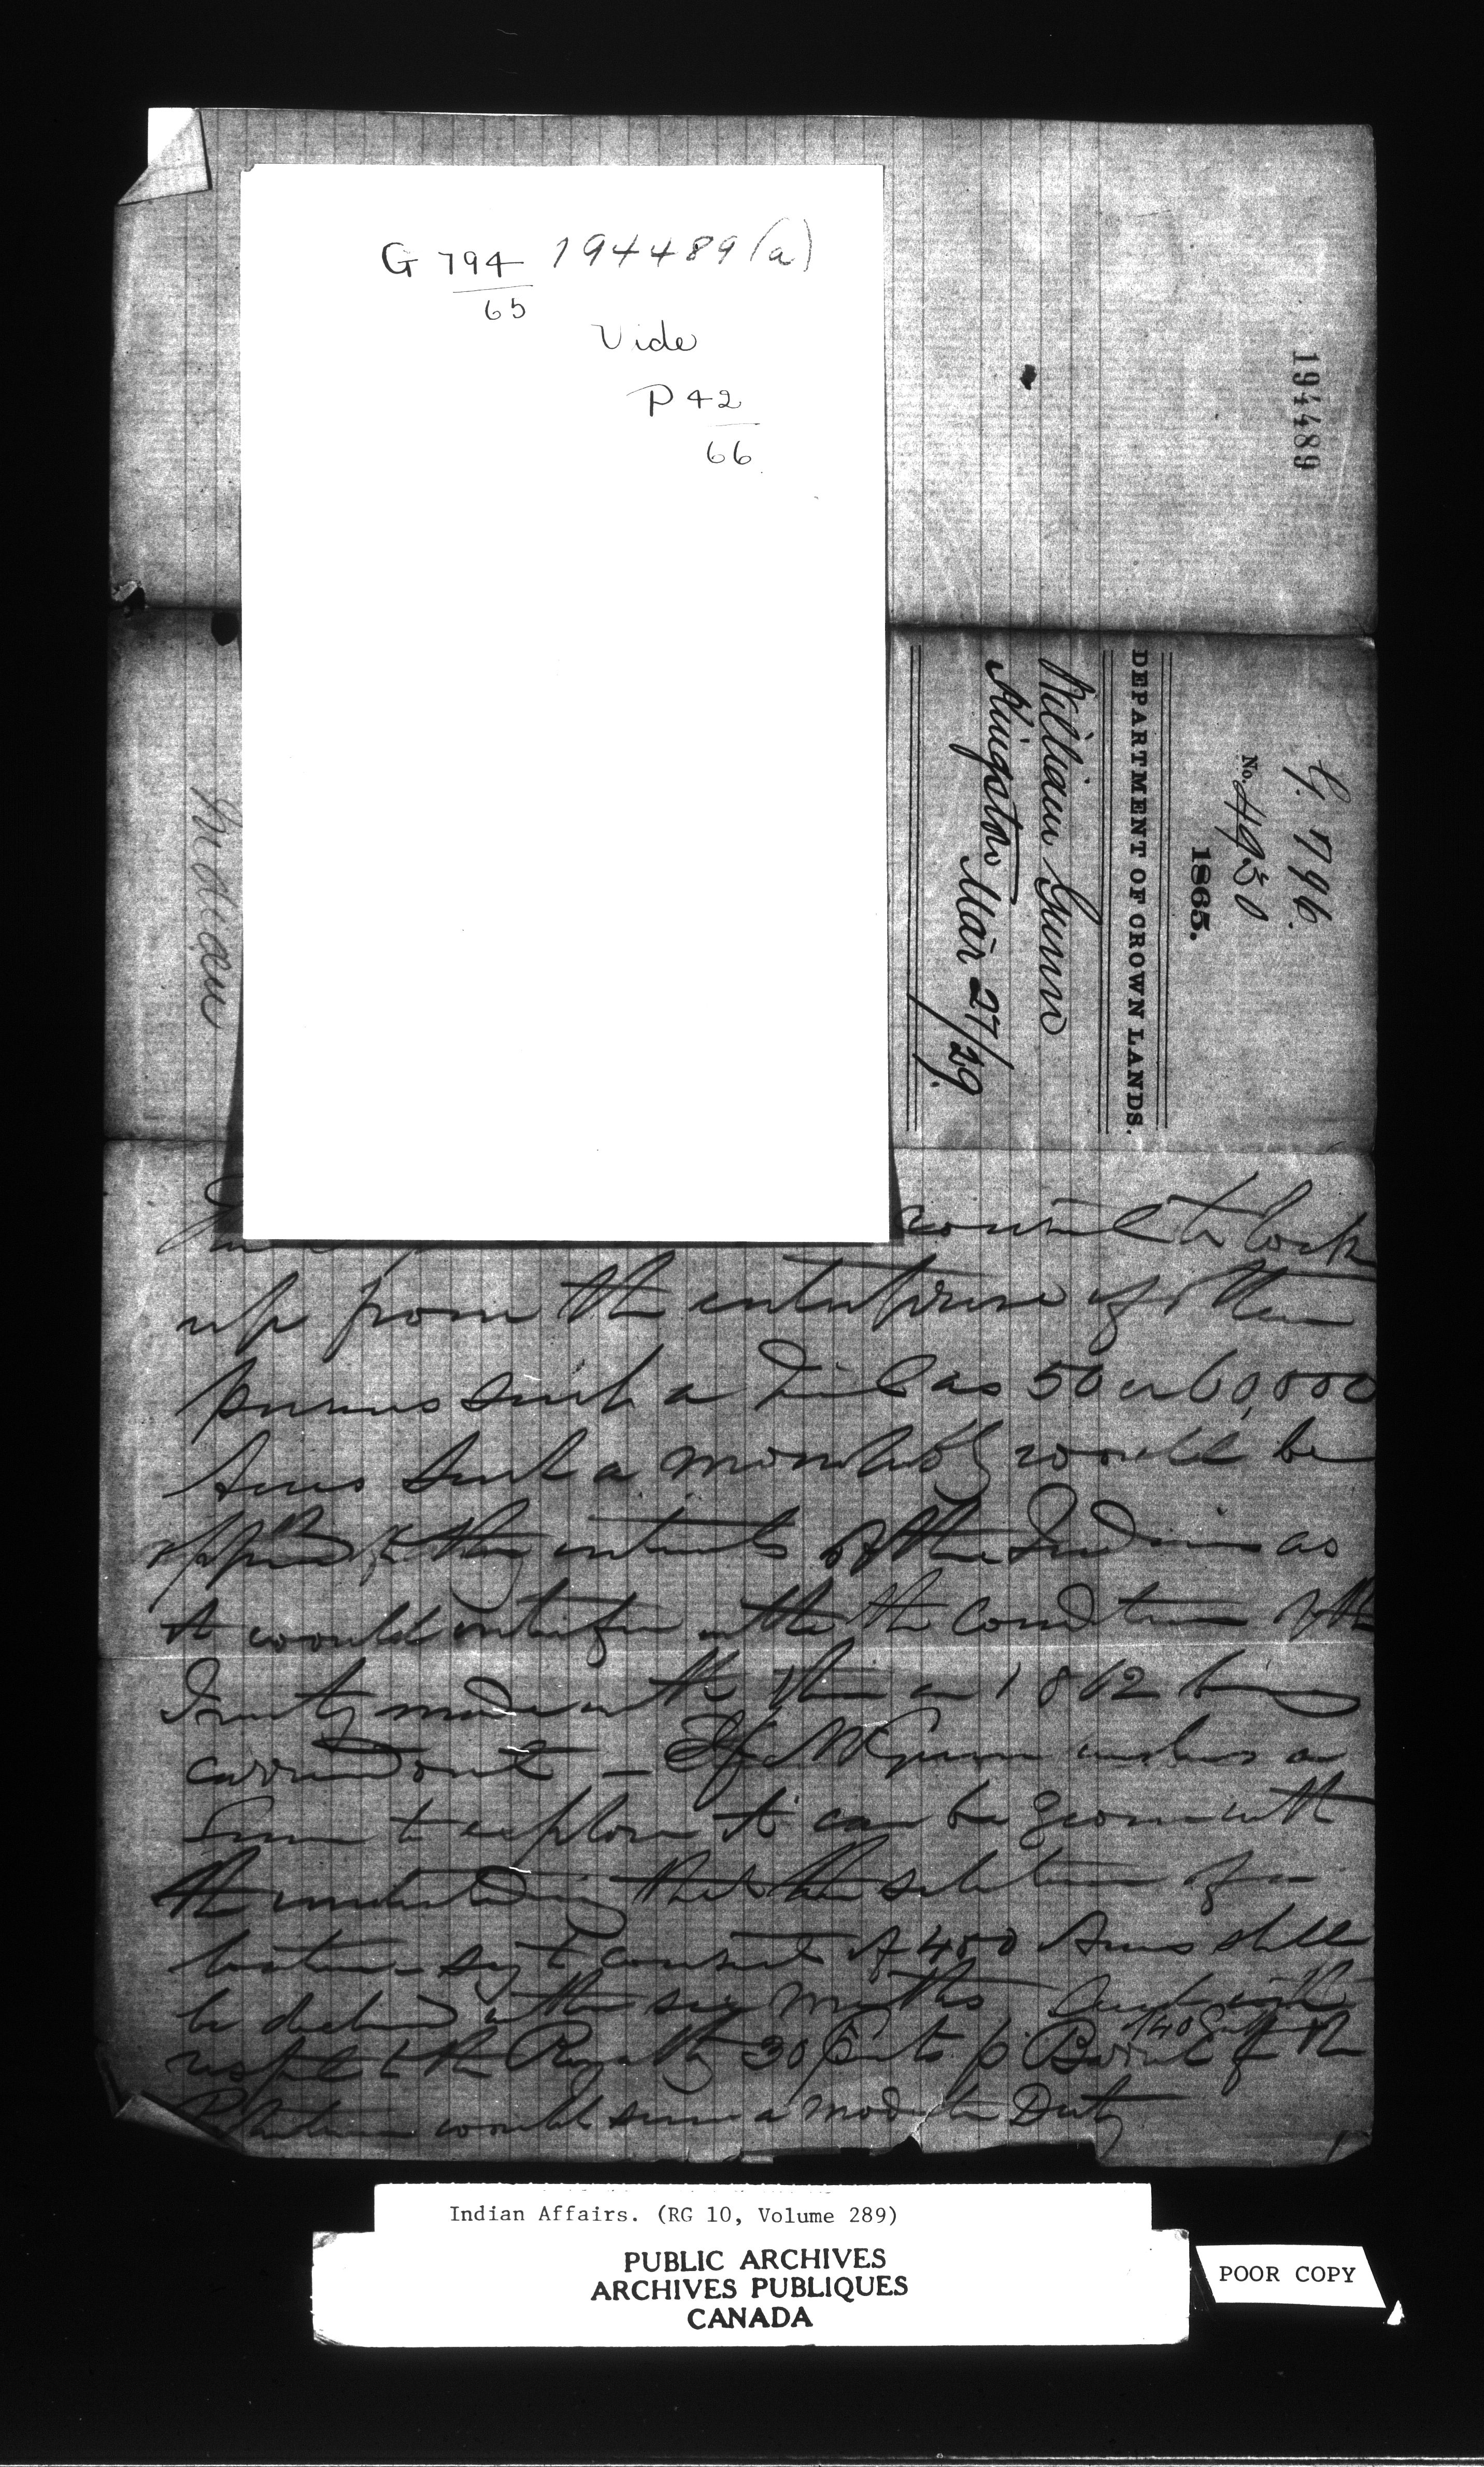 G 794/65 194489(a)
Vide
P 42/66
194489
G. 796.
No. 4930
1865.
DEPARTMENT OF CROWN LANDS.
William Gunn
Kingston Mar 27/29.
Indian
consent to lock
up from the enterprise of other
persons such a field as 50 or 60,000
Acres Such a monopoly would be
opposed to the interests of the Indians as
it would interfere with the Condition of the
Treaty made with them in 1862 being
carried out — If Mr Gunn wishes a
to explore it can be given with
the understanding that the selection of
location to consist of 400 Acres shall
be declared within six months and with
respect to the Royalty 30 Cents p. Barrel of 40 Gallons of the
Petroleum would seem a moderate Duty
Indian Affairs. (RG 10, Volume 289)
PUBLIC ARCHIVES
ARCHIVES PUBLIQUES
CANADA
POOR COPY